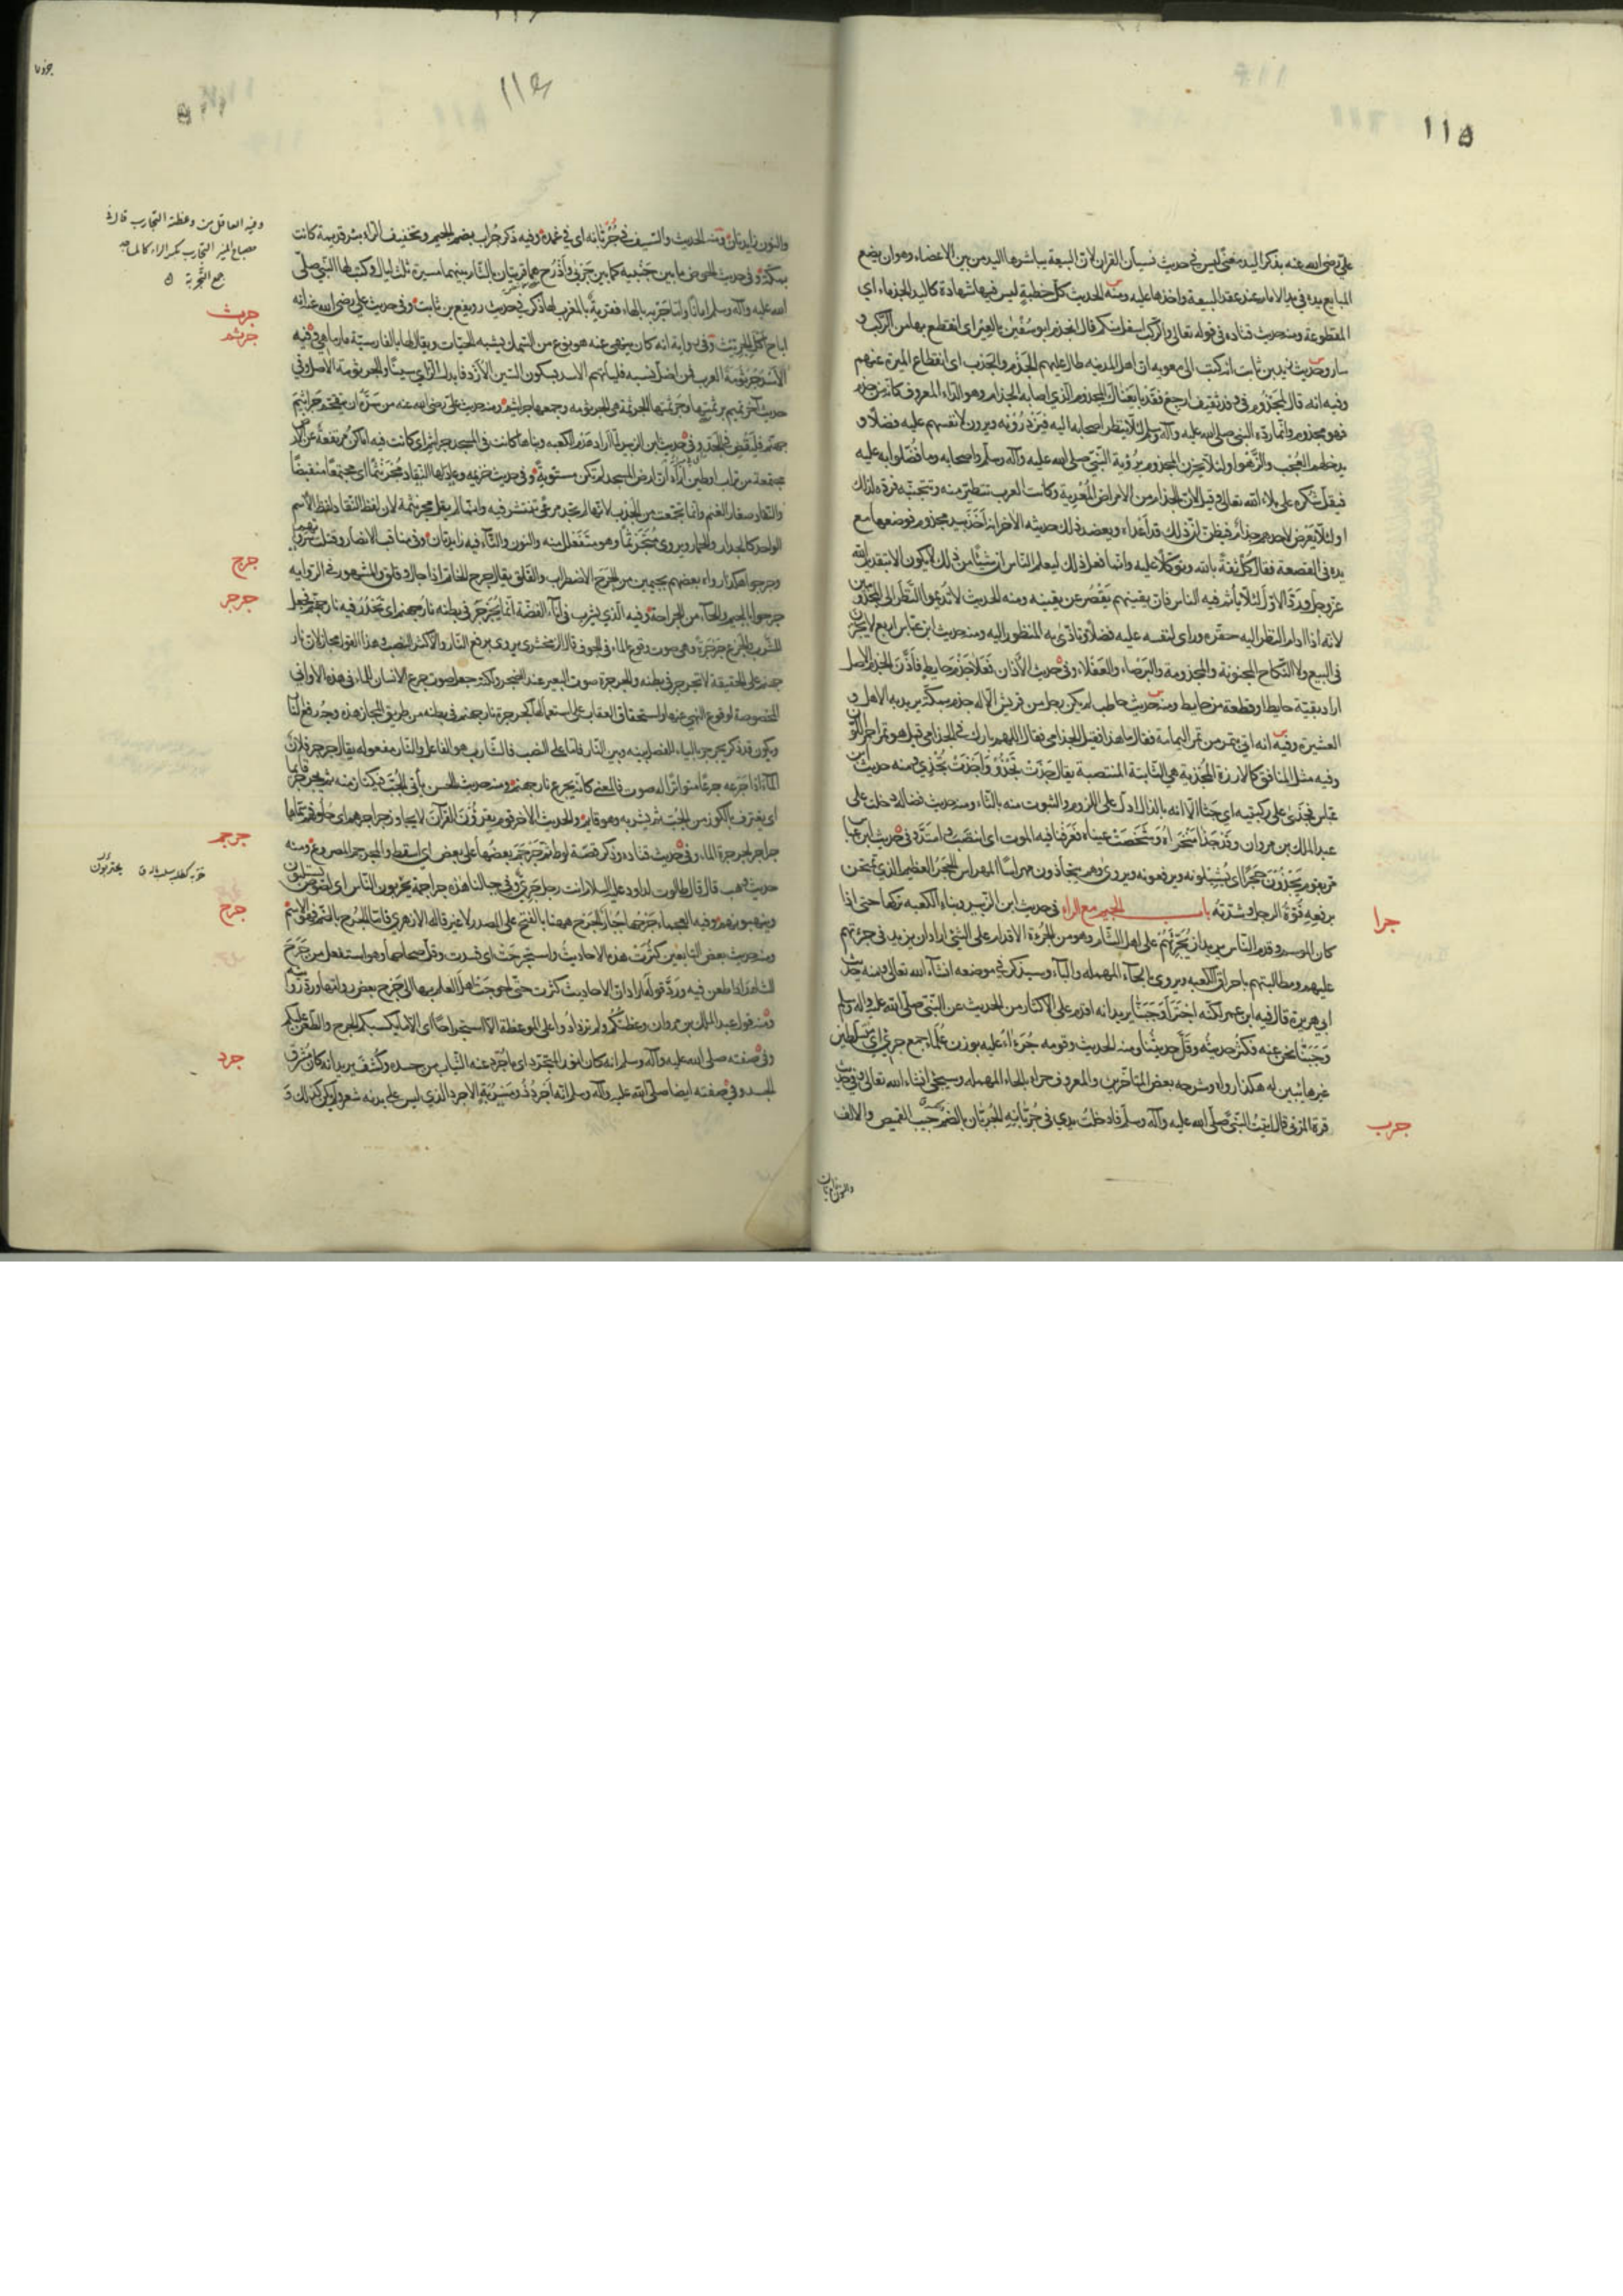 ١١٥
علي رضي الله عنه بذكر اليد معنى ليس في حديث نسيان القران لان البيعة يباشرها اليد من بين الاعضاء وهو ان يضع
المبايع يده في يد الامام عند عقد البيعة واخذها عليه ومنه الحديث كل خطبة ليس فيها شهادة كاليد الجذماء اي
المقطوعة ومنه حديث قتاده في قوله تعالى والركب اسفل منكم قال انجذم ابو سفين بالعير اى انقطع بها من الركب و
سار وحديث زيد بن ثابت انه كتب الى معوية ان اهل المدينه طال عليهم الجذم والجذب اى انقطاع الميرة عنهم
وفيه انه قال لمجذوم في وفد ثقيف ارجع فقد بايعناك المجذوم الذي اصابه الجذام وهو الداء المعروف كانه من جذم
فهو مجذوم وانما رده النبي صلى الله عليه وآله وسلم لئلا ينظر اصحابه اليه فيزدرونه ويرون لانفسهم عليه فضلا و
يدخلهم العجب والزهو او لئلا يحزن المجذوم برؤية النبي صلى الله عليه وآله وسلم واصحابه وما فضلوا به عليه
فيقل شكره على بلاء الله تعالى وقيل لان الجذام من الامراض المعدية وكانت العرب تتطير منه وتتجنبه فرده لذلك
او لئلا يعرض لاحدهم جذام فيظن ان ذلك قد اعداه ويعضد ذلك حديثه الاخر انه اخذ بيد مجذوم فوضعها مع
يده في القصعة فقال كل ثقة بالله وتوكلا عليه وانما فعل ذلك ليعلم الناس ان شيئا من ذلك لا يكون الا بتقدير الله
عز وجل ورد الاول لئلا يأثم فيه الناس فان يقينهم يقصر عن يقينه ومنه الحديث لا تديموا النظر الى المجذومين
لانه اذا ادام النظر اليه حقره وراى لنفسه عليه فضلا وتاذى به المنظور اليه ومنه حديث ابن عباس اربع لا يجزن
في البيع ولا النكاح المجنونة والمجذومة والبرصاء والعفلاء وفي حديث الاذان فعلا جذم حايط فاذن الجذم الاصل
اراد بقية حايط او قطعة من حايط ومنه حديث حاطب لم يكن رجل من قريش الا له جذم بمكة يريد به الاهل و
العشيرة وفيه انه اتي بتمر من تمر اليمامة فقال ما هذا فقيل الجذامي فقال اللهم بارك في الجذامي قيل هو تمر احمر اللون
وفيه مثل المنافق كالارزة المجذية هي الثابتة المنتصبة يقال جذت تجذو واجذت تجذي ومنه حديث ابن
عباس فجذى على ركبتيه اي جثا الا انه بالذال ادل على اللزوم والثبوت منه بالثاء ومنه حديث فضاله دخلت على
عبد الملك بن مروان وقد جذا منخراه وشخصت عيناه فعرفنا فيه الموت اى انتصب وامتد وفي حديث ابن عباس
مر بقوم يجذون حجرا اى يشيلونه ويرفعونه ويروى وهم يتجاذون مهراسا المهراس الحجر العظيم الذي تمتحن
برفعه قوة الرجل وشدته باب الجيم مع الراء في حديث ابن الزبير وبناء الكعبه تركها حتى اذا
جرا
كان الموسم وقدم الناس يريد ان يجرئهم على اهل الشام وهو من الجرءة الاقدام على الشئ اراد ان يزيد في جرءتهم
عليهم ومطالبتهم باحراق الكعبه ويروى بالحاء المهمله والباء وسيذكر في موضعه انشاء الله تعالى ومنه حديث
ابي هريرة قال فيه ابن عمر لكنه اجترا وجبنا يريد انه اقدم على الاكثار من الحديث عن النبي صلى الله عليه واله وسلم
وجبنا نحن عنه فكثر حديثه وقل حديثنا ومنه الحديث وقومه جرءاء عليه بوزن علماء جمع جرئ اى متسلطين
غير هائبين له هكذا رواه وشرحه بعض المتاخرين والمعروف حراء بالحاء المهمله وسيجئ انشاء الله تعالى وفي حديث
قرة المزني قال اتيت النبي صلى الله عليه وآله وسلم فادخلت يدي في جربانه الجربان بالضم جيب القميص والالف
جرب
والنون زايدتان
١١٤
والنون زايدتان ومنه الحديث والسيف في جربانه اى في غمده وفيه ذكر جراب بضم الجيم وتخفيف الراء بئر قديمة كانت
بمكة وفي حديث الحوض ما بين جنبيه كما بين جربى واذرح هما قريتان بالشام بينهما مسيرة ثلث ليال وكتب لهما النبي صلى
الله عليه وآله وسلم امانا واما جربة بالهاء فقرية بالمغرب لها ذكر في حديث رويفع بن ثابت وفي حديث علي رضي الله عنه انه
اباح اكل الجريث وفي رواية انه كان ينهى عنه هو نوع من السمك يشبه الحيات ويقال لها بالفارسية مارماهي وفيه
الاسد جرثومة العرب فمن اضل نسبه فليأتهم الاسد بسكون السين الازد فابدل الزاي سينا والجرثومة الاصل وفي
حديث آخر تميم برثمتها وجرثمتها الجرثمة هي الجرثومه وجمعها جراثيم ومنه حديث علي رضي الله عنه من سره ان يتقحم جراثيم
جهنم فليقض في الجد وفي حديث ابن الزبير لما اراد هدم الكعبه وبناها كانت في المسجد جراثيم اى كانت فيه اماكن مرتفعة عن الارض
مجتمعة من تراب او طين اراد ان ارض المسجد لم تكن مستوية وفي حديث خزيمه وعاد لها النقاد مجرنثما اى مجتمعا منقبضا
والنقاد صغار الغنم وانما تجمعت من الجدب لانها لم تجد مرعى تنتشر فيه وانما لم يقل مجرنثمة لان لفظ النقاد لفظ الاسم
الواحد كالجدار والخمار ويروى متجرثما وهو متفعلل منه والنون والتاء فيه زايدتان وفي مناقب الانصار وقتلت سرواتهم
وجرجوا هكذا رواه بعضهم بجيمين من الجرج الاضطراب والقلق يقال جرج الخاتم اذا جال وقلق والمشهور في الروايه
جرحوا بالجيم والحاء من الجراحة وفيه الذي يشرب في اناء الفضة انما يجرجر في بطنه نار جهنم اى تحدر فيه نار جهنم فجعل
الشرب والجرع جرجرة وهي صوت وقوع الماء في الجوف قال الزمخشري يروى برفع النار والاكثر النصب وهذا القول مجاز لان نار
جهنم على الحقيقة لا تجرجر في بطنه والجرجرة صوت البعير عند الضجر ولكنه جعل صوت جرع الانسان للماء في هذه الاواني
المخصوصة لوقوع النهي عنها واستحقاق العقاب على استعمالها كجرجرة نار جهنم في بطنه من طريق المجاز هذا وجه رفع النار
ويكون قد ذكر يجرجر بالياء للفصل بينه وبين النار فاما على النصب فالشارب هو الفاعل والنار مفعوله يقال جرجر فلان
الماء اذا جرعه جرعا متواترا له صوت فالمعنى كانما يجرع نار جهنم ومنه حديث الحسن يأتي الحب فيكتاز منه ثم يجرجر قايما
اى يغترف بالكوز من الحب ثم يشربه وهو قائم والحديث الاخر قوم يقرؤن القرآن لا يجاوز جراجرهم اى حلوقهم سماها
جراجر لجرجرة الماء وفي حديث قتاده وذكر قصة لوط ثم جرجم بعضها على بعض اى اسقط والمجرجم المصروع ومنه
حديث وهب قال قال طالوت لداود عليه السلام انت رجل جرئ وفي جبالنا هذه جراجمة يحتربون الناس اى لصوص يستلبون
وينهبونهم وفيه العجماء جرحها جبار الجرح ههنا بالفتح على المصدر لا غير قاله الازهري فاما الجرح بالضم فهو الاسم
ومنه حديث بعض التابعين كثرت هذه الاحاديث واستجرحت اى فسدت وقل صحاحها وهو استفعل من جرح
الشاهد اذا طعن فيه ورد قوله اراد ان الاحاديث كثرت حتى احوجت اهل العلم بها الى جرح بعض رواتها ورد روايته
ومنه قول عبد الملك بن مروان وعظتكم فلم تزدادوا على الموعظة الا استجراحا اى الا ما يكسبكم الجرح والطعن عليكم
وفي صفته صلى الله عليه وآله وسلم انه كان انور المتجرد اى ما جرد عنه الثياب من جسده وكشف يريد انه كان مشرق
الجسد وفي صفته ايضا صلى الله عليه وآله وسلم انه اجرد ذو مسربة الاجرد الذي ليس على بدنه شعر ولم يكن كذلك و
وفيه العاقل من وعظته التجارب قال في
مصباح المنير التجارب بكسر الراء كالمساجد
جمع التجربة
جرث
جرثم
جرج
جرجر
جرجم
جرح
جرد